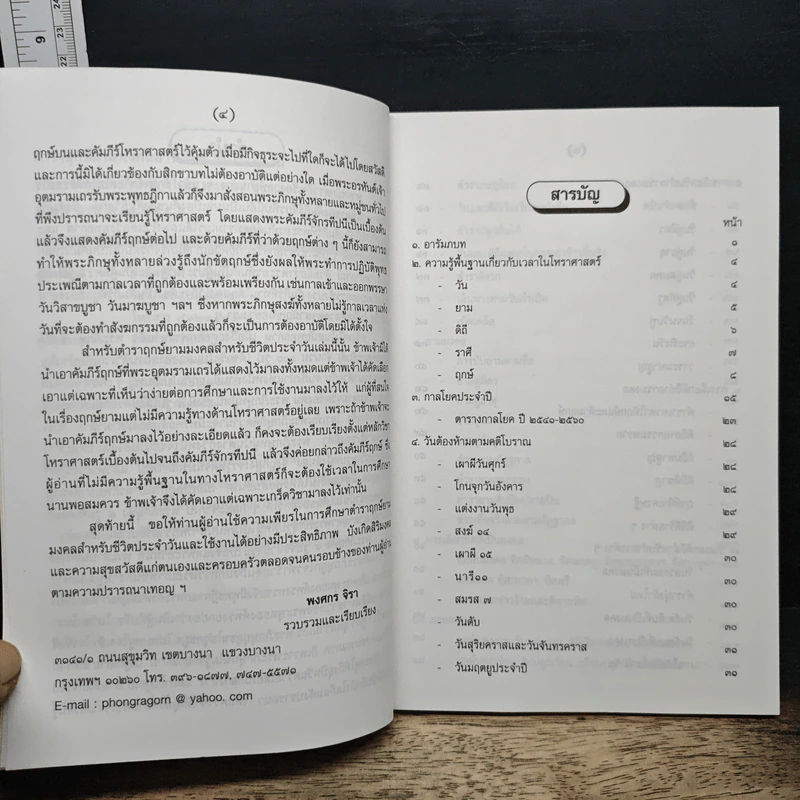 9
24
23
22
(๔)
ฤกษ์บนและคัมภีร์โหราศาสตร์ไว้คุ้มตัว เมื่อมีกิจธุระจะไปที่ใดก็จะได้ไปโดยสวัสดี
และการนี้มิได้เกี่ยวข้องกับสิกขาบทไม่ต้องอาบัติแต่อย่างใด เมื่อพระอรหันต์เจ้า
อุตมรามเถรรับพระพุทธฎีกาแล้วก็จึงมาสั่งสอนพระภิกษุทั้งหลายและหมู่ชนทั่วไป
ที่พึงปรารถนาจะเรียนรู้โหราศาสตร์ โดยแสดงพระคัมภีร์จักรทีปนีเป็นเบื้องต้น
แล้วจึงแสดงคัมภีร์ฤกษ์ต่อไป และด้วยคัมภีร์ที่ว่าด้วยฤกษ์ต่าง ๆ นี้ก็ยังสามารถ
ทำให้พระภิกษุทั้งหลายล่วงรู้ถึงนักขัตฤกษ์ซึ่งยังผลให้พระทำการปฏิบัติพุทธ
ประเพณีตามกาลเวลาที่ถูกต้องและพร้อมเพรียงกัน เช่นกาลเข้าและออกพรรษา
วันวิสาขบูชา วันมาฆบูชา ฯลฯ ซึ่งหากพระภิกษุสงฆ์ทั้งหลายไม่รู้กาลเวลาแห่ง
วันที่จะต้องทำสังฆกรรมที่ถูกต้องแล้วก็จะเป็นการต้องอาบัติโดยมิได้ตั้งใจ
สำหรับตำราฤกษ์ยามมงคลสำหรับชีวิตประจำวันเล่มนี้นั้น ข้าพเจ้ามิได้
นำเอาคัมภีร์ฤกษ์ที่พระอุตมรามเถรได้แสดงไว้มาลงทั้งหมดแต่ข้าพเจ้าได้คัดเลือก
เอาแต่เฉพาะที่เห็นว่าง่ายต่อการศึกษาและการใช้งานมาลงไว้ให้ แก่ผู้ที่สนใจ
ในเรื่องฤกษ์ยามแต่ไม่มีความรู้ทางด้านโหราศาสตร์อยู่เลย เพราะถ้าข้าพเจ้าจะ
นำเอาคัมภีร์ฤกษ์มาลงไว้อย่างละเอียดแล้ว ก็คงจะต้องเรียบเรียงตั้งแต่หลักวิชา
โหราศาสตร์เบื้องต้นไปจนถึงคัมภีร์จักรทีปนี แล้วจึงค่อยกล่าวถึงคัมภีร์ฤกษ์ ซึ่ง
ผู้อ่านที่ไม่มีความรู้พื้นฐานในทางโหราศาสตร์ก็จะต้องใช้เวลาในการศึกษา
นานพอสมควร ข้าพเจ้าจึงได้คัดเอาแต่เฉพาะเกร็ดวิชามาลงไว้เท่านั้น
สุดท้ายนี้ ขอให้ท่านผู้อ่านใช้ความเพียรในการศึกษาตำราฤกษ์ยาม
มงคลสำหรับชีวิตประจำวันและใช้งานได้อย่างมีประสิทธิภาพ บังเกิดสิริมงคล
และความสุขสวัสดีแก่ตนเองและครอบครัวตลอดจนคนรอบข้างของท่านผู้อ่าน
ตามความปรารถนาเทอญ ฯ
พงศกร จิรา
รวบรวมและเรียบเรียง
๓๑๔๑/๑ ถนนสุขุมวิท เขตบางนา แขวงบางนา
กรุงเทพฯ ๑๐๒๖๐ โทร. ๓๙๖-๑๘๗๗, ๗๔๗-๕๕๗๑
E-mail : phongragorn @ yahoo. com
สารบัญ
หน้า
๑. อารัมภบท ๑
๒. ความรู้พื้นฐานเกี่ยวกับเวลาในโหราศาสตร์ ๔
- วัน ๔
- ยาม ๕
- ดิถี ๖
- ราศี ๗
- ฤกษ์ ๘
๓. กาลโยคประจำปี ๑๕
- ตารางกาลโยค ปี ๒๕๔๐-๒๕๖๐ ๒๓
๔. วันต้องห้ามตามคติโบราณ ๒๘
- เผาผีวันศุกร์ ๒๘
- โกนจุกวันอังคาร ๒๘
- แต่งงานวันพุธ ๒๙
- สงฆ์ ๑๔ ๒๙
- เผาผี ๑๕ ๓๐
- นารี๑๑ ๓๐
- สมรส ๗ ๓๐
- วันดับ ๓๐
- วันสุริยคราสและวันจันทรคราส ๓๑
- วันมฤตยูประจำปี ๓๑